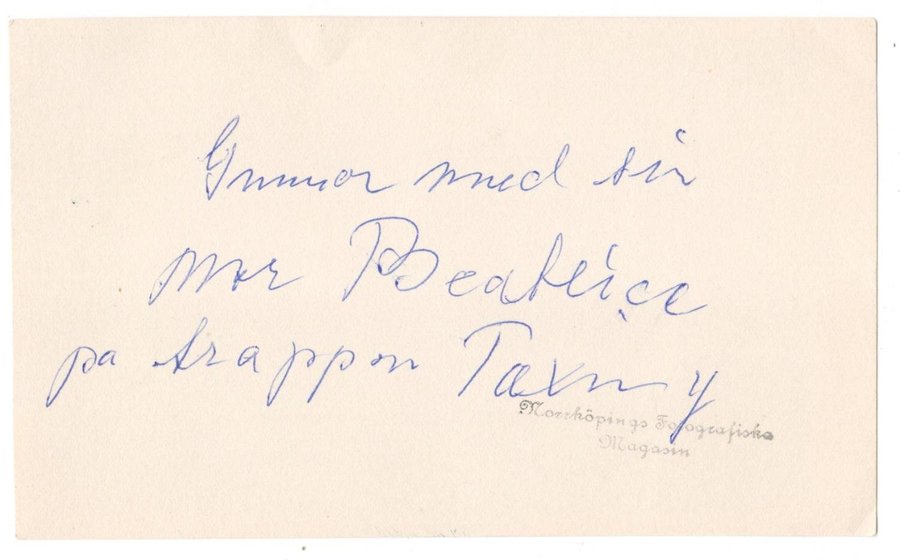 Gunnar med sin
mor Beatrice
på trappan
Norrköpings Fotografiska
Magasin